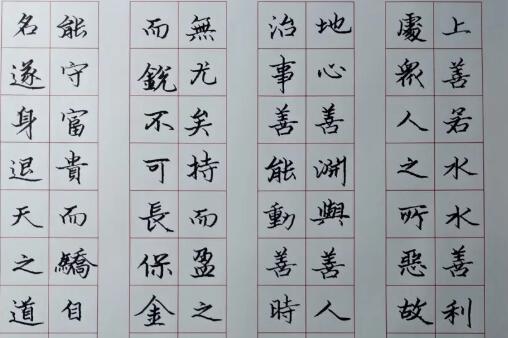 上善若水水善利
處衆人之所惡故
地心善淵與善人
治事善能動善時
無尤矣持而盈之
而銳不可長保金
能守富貴而驕自
名遂身退天之道